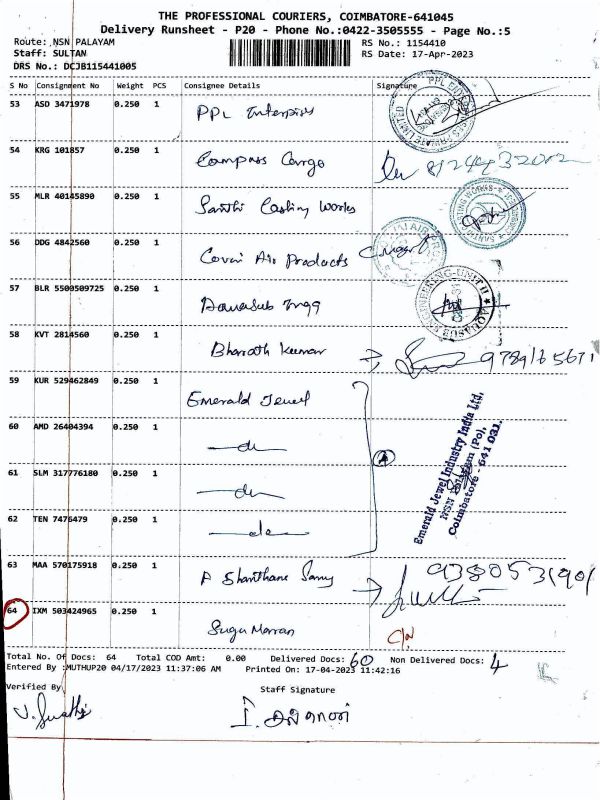 THE PROFESSIONAL COURIERS, COIMBATORE-641045
Delivery Runsheet - P20 - Phone No.:0422-3505555 - Page No.:5
Route: NSN PALAYAM RS No.: 1154410
Staff: SULTAN RS Date: 17-Apr-2023
DRS No.: DCJB115441005
S No Consignment No Weight PCS Consignee Details Signature
53 ASD 3471978 0.250 1 PPL Enterprises
54 KRG 101857 0.250 1 Compass Cargo
55 MLR 40145890 0.250 1 Santhi Casting Works
56 DDG 4842560 0.250 1 Covai Air Products
57 BLR 5500509725 0.250 1 Engg
58 KVT 2814560 0.250 1 Bharath Kumar 9789165671
59 KUR 529462849 0.250 1 Emerald Jewel
60 AMD 26404394 0.250 1 do
61 SLM 317776180 0.250 1 do
62 TEN 7476479 0.250 1 do
Emerald Jewel Industry India Ltd,
NSN Palayam (Po),
Coimbatore - 641 031.
63 MAA 570175918 0.250 1 P Shanthane Samy 9380531901
64 IXM 503424965 0.250 1 Sugu Marran
Total No. Of Docs: 64 Total COD Amt: 0.00 Delivered Docs: 60 Non Delivered Docs: 4
Entered By :MUTHUP20 04/17/2023 11:37:06 AM Printed On: 17-04-2023 11:42:16
Verified By Staff Signature